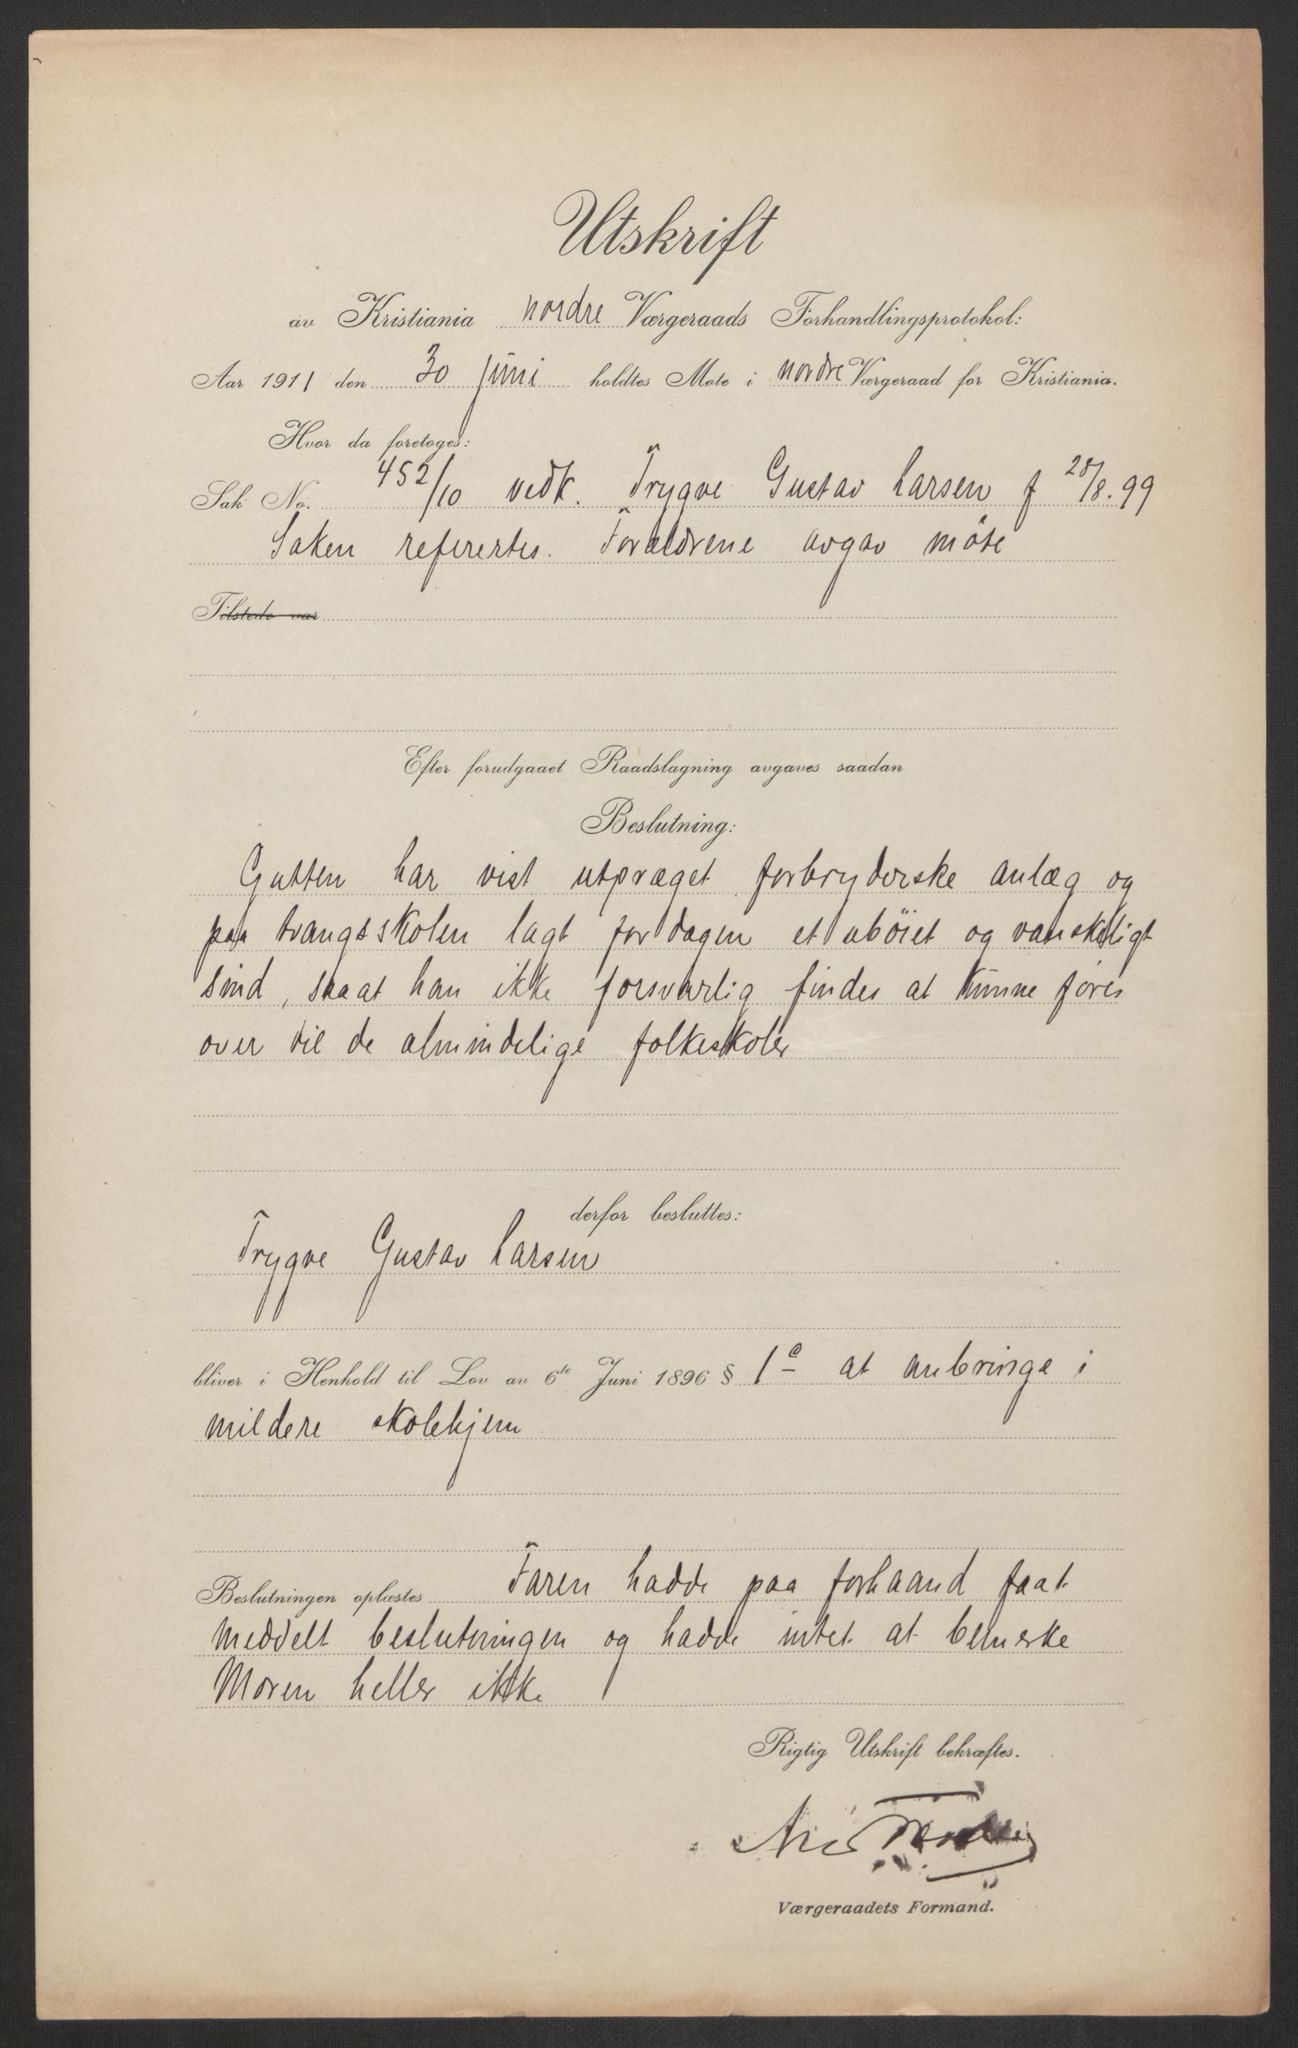 Utskrift
av Kristiania nordre Værgeraads Forhandlingsprotokol:
Aar 1911 den 30 juni holdtes Møte i nordre Værgeraad for Kristiania.
Hvor da foretoges:
Sak No. 452/10 vedk. Trygve Gustav Larsen f 28/8.99
Saken referertes. Forældrene avgav møte
Tilstede var
Efter forudgaaet Raadslagning avgaves saadan
Beslutning:
Gutten har vist utpræget forbryderske anlæg og
paa tvangsskolen lagt for dagen et ubøiet og vanskeligt
sind, saa at han ikke forsvarlig findes at kunne føres
over til de almindelige folkeskoler
derfor besluttes:
Trygve Gustav Larsen
bliver i Henhold til Lov av 6te Juni 1896 § 1a at anbringe i
mildere skolehjem
Beslutningen oplæstes Faren hadde paa forhaand faat
meddelt beslutningen og hadde intet at bemerke
Moren heller ikke
Rigtig Utskrift bekræftes.
Værgeraadets Formand.